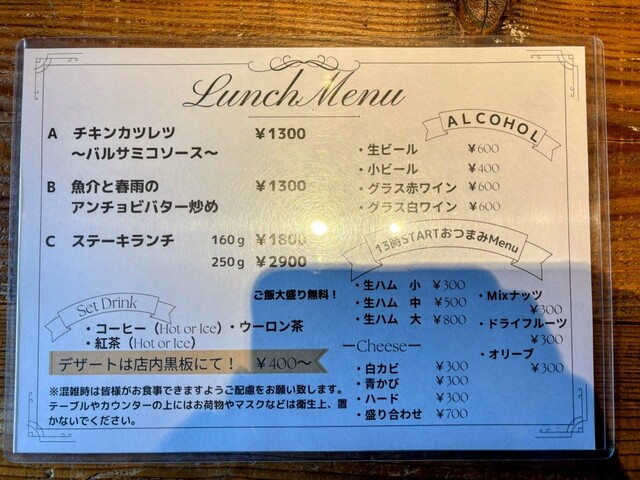 Lunch Menu
A チキンカツレツ ¥1300
～バルサミコソース～
B 魚介と春雨の ¥1300
アンチョビバター炒め
C ステーキランチ 160g ¥1800
250g ¥2900
ご飯大盛り無料！
Set Drink
・コーヒー（Hot or Ice）・ウーロン茶
・紅茶（Hot or Ice）
デザートは店内黒板にて！ ¥400～
※混雑時は皆様がお食事できますようご配慮をお願い致します。
テーブルやカウンターの上にはお荷物やマスクなどは衛生上、置
かないでください。
ALCOHOL
・生ビール ¥600
・小ビール ¥400
・グラス赤ワイン ¥600
・グラス白ワイン ¥600
13時STARTおつまみMenu
・生ハム 小 ¥300
・生ハム 中 ¥500
・生ハム 大 ¥800
ーCheeseー
・白カビ ¥300
・青かび ¥300
・ハード ¥300
・盛り合わせ ¥700
・Mixナッツ
¥300
・ドライフルーツ
¥300
・オリーブ
¥300